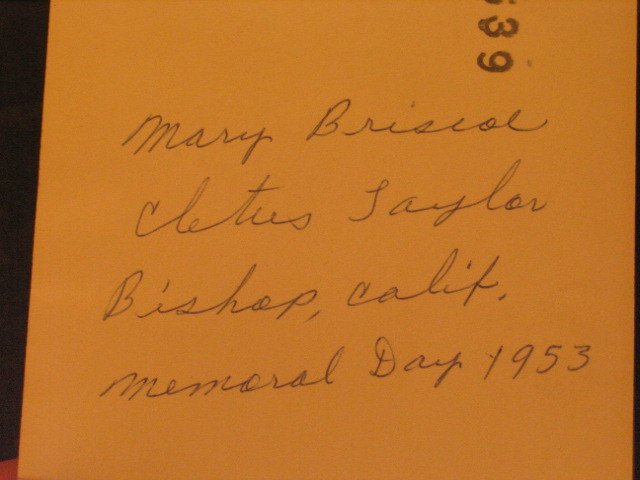 639
Mary Briscoe
Cletus Taylor
Bishop, Calif.
Memoral Day 1953